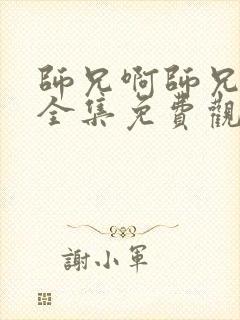 師兄啊師兄
全集免費觀
謝小軍